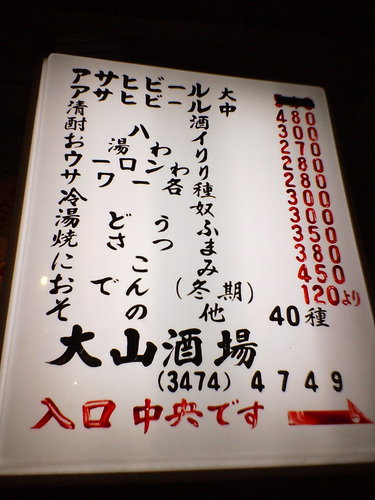 アサヒビール 大
アサヒビール 中 480
清酒 300
酎ハイ 270
お湯わり 280
ウーロンわり 280
サワー各種 300
冷奴 300
湯どうふ 350
焼さつま 380
にこみ 450
おでん(冬期) 120より
その他 40種
大山酒場
(3474)4749
入口中央です